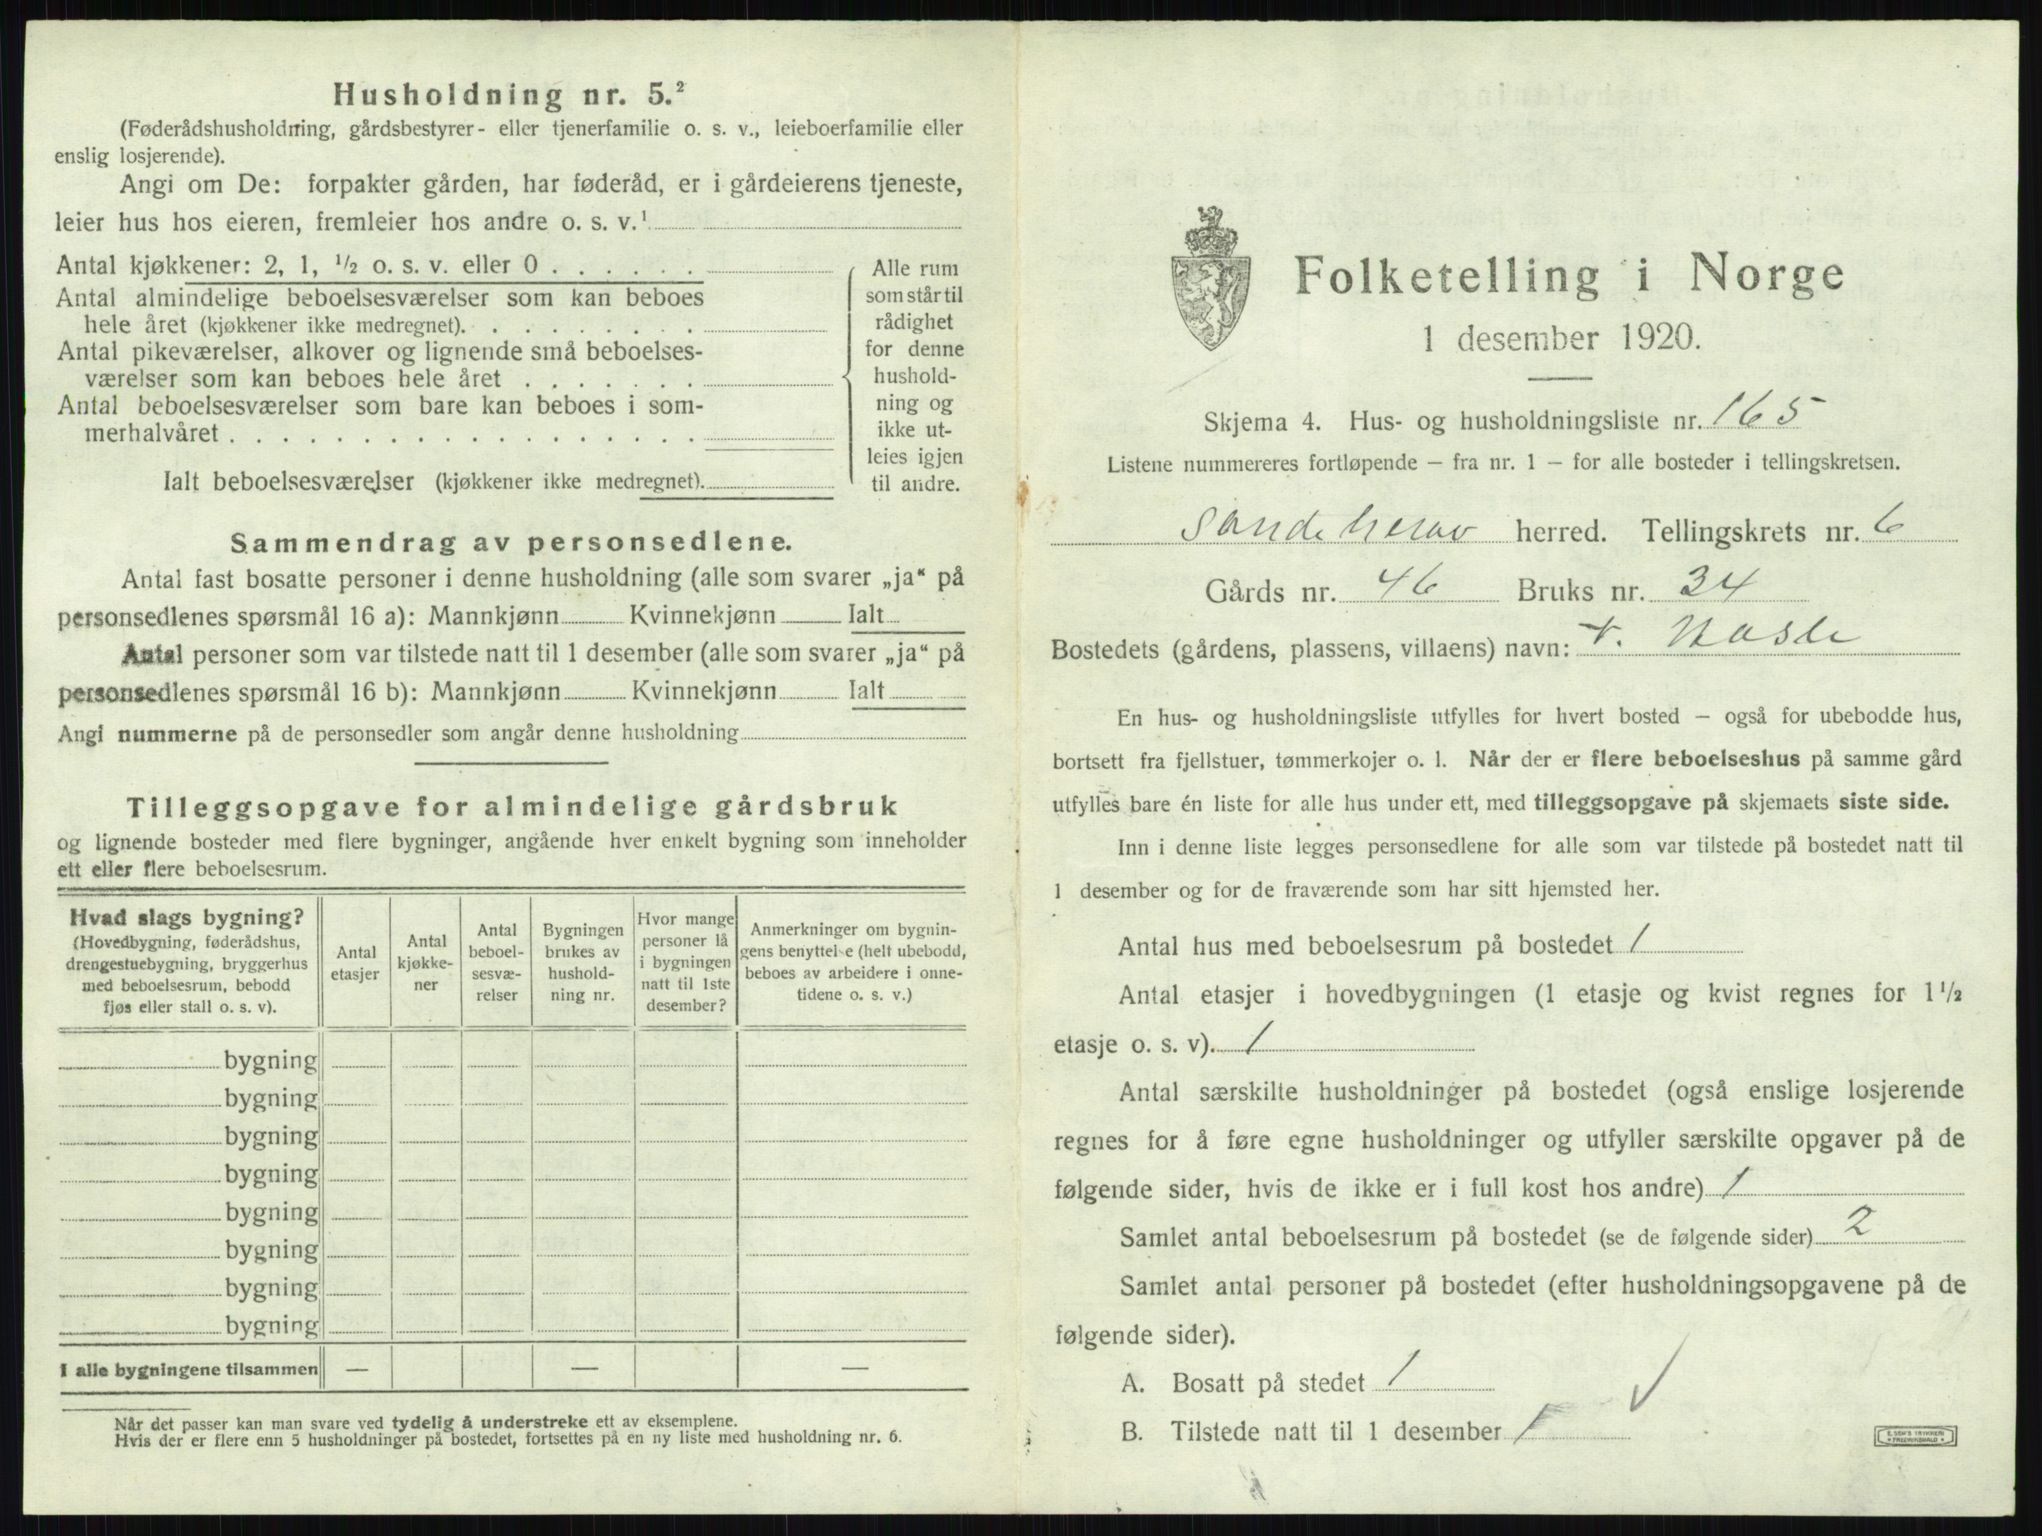 Husholdning nr. 5.²
(Føderådshusholdning, gårdsbestyrer- eller tjenerfamilie o. s. v., leieboerfamilie eller
enslig losjerende).
Angi om De: forpakter gården, har føderåd, er i gårdeierens tjeneste,
leier hus hos eieren, fremleier hos andre o. s. v.¹
Antal kjøkkener: 2, 1, ½ o. s. v. eller 0 . . . . . .
Antal almindelige beboelsesværelser som kan beboes
hele året (kjøkkener ikke medregnet). . . . . . . . .
Antal pikeværelser, alkover og lignende små beboelses-
værelser som kan beboes hele året . . . . . . .
Antal beboelsesværelser som bare kan beboes i som-
merhalvåret . . . . . . . . . . . . . . . . . .
Ialt beboelsesværelser (kjøkkener ikke medregnet).
Alle rum
som står til
rådighet
for denne
hushold-
ning og
ikke ut-
leies igjen
til andre.
Sammendrag av personsedlene.
Antal fast bosatte personer i denne husholdning (alle som svarer „ja“ på
personsedlenes spørsmål 16 a): Mannkjønn Kvinnekjønn Ialt
Antal personer som var tilstede natt til 1 desember (alle som svarer „ja“ på
personsedlenes spørsmål 16 b): Mannkjønn Kvinnekjønn Ialt
Angi nummerne på de personsedler som angår denne husholdning
Tilleggsopgave for almindelige gårdsbruk
og lignende bosteder med flere bygninger, angående hver enkelt bygning som inneholder
ett eller flere beboelsesrum.
Hvad slags bygning?
(Hovedbygning, føderådshus,
drengestuebygning, bryggerhus
med beboelsesrum, bebodd
fjøs eller stall o. s. v).
Antal
etasjer
Antal
kjøkke-
ner
Antal
beboel-
sesvæ-
relser
Bygningen
brukes av
hushold-
ning nr.
Hvor mange
personer lå
i bygningen
natt til 1ste
desember?
Anmerkninger om bygnin-
gens benyttelse (helt ubebodd,
beboes av arbeidere i onne-
tidene o. s. v.)
bygning
bygning
bygning
bygning
bygning
bygning
bygning
bygning
I alle bygningene tilsammen — — —
Når det passer kan man svare ved tydelig å understreke ett av eksemplene.
Hvis der er flere enn 5 husholdninger på bostedet, fortsettes på en ny liste med husholdning nr. 6.
Folketelling i Norge
1 desember 1920.
Skjema 4. Hus- og husholdningsliste nr. 165
Listene nummereres fortløpende — fra nr. 1 — for alle bosteder i tellingskretsen.
Sandeherav herred. Tellingskrets nr. 6
Gårds nr. 46 Bruks nr. 34
Bostedets (gårdens, plassens, villaens) navn: +. Nasle
En hus- og husholdningsliste utfylles for hvert bosted — også for ubebodde hus,
bortsett fra fjellstuer, tømmerkojer o. l. Når der er flere beboelseshus på samme gård
utfylles bare én liste for alle hus under ett, med tilleggsopgave på skjemaets siste side.
Inn i denne liste legges personsedlene for alle som var tilstede på bostedet natt til
1 desember og for de fraværende som har sitt hjemsted her.
Antal hus med beboelsesrum på bostedet 1
Antal etasjer i hovedbygningen (1 etasje og kvist regnes for 1½
etasje o. s. v). 1
Antal særskilte husholdninger på bostedet (også enslige losjerende
regnes for å føre egne husholdninger og utfyller særskilte opgaver på de
følgende sider, hvis de ikke er i full kost hos andre) 1
Samlet antal beboelsesrum på bostedet (se de følgende sider) 2
Samlet antal personer på bostedet (efter husholdningsopgavene på de
følgende sider).
A. Bosatt på stedet 1
B. Tilstede natt til 1 desember 1